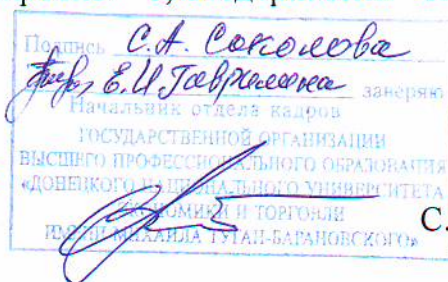 Подпись С.А. Соколова
Е.И. Гаврилина заверяю
Начальник отдела кадров
ГОСУДАРСТВЕННОЙ ОРГАНИЗАЦИИ
ВЫСШЕГО ПРОФЕССИОНАЛЬНОГО ОБРАЗОВАНИЯ
«ДОНЕЦКОГО НАЦИОНАЛЬНОГО УНИВЕРСИТЕТА
ЭКОНОМИКИ И ТОРГОВЛИ
ИМЕНИ МИХАИЛА ТУГАН-БАРАНОВСКОГО»
С.